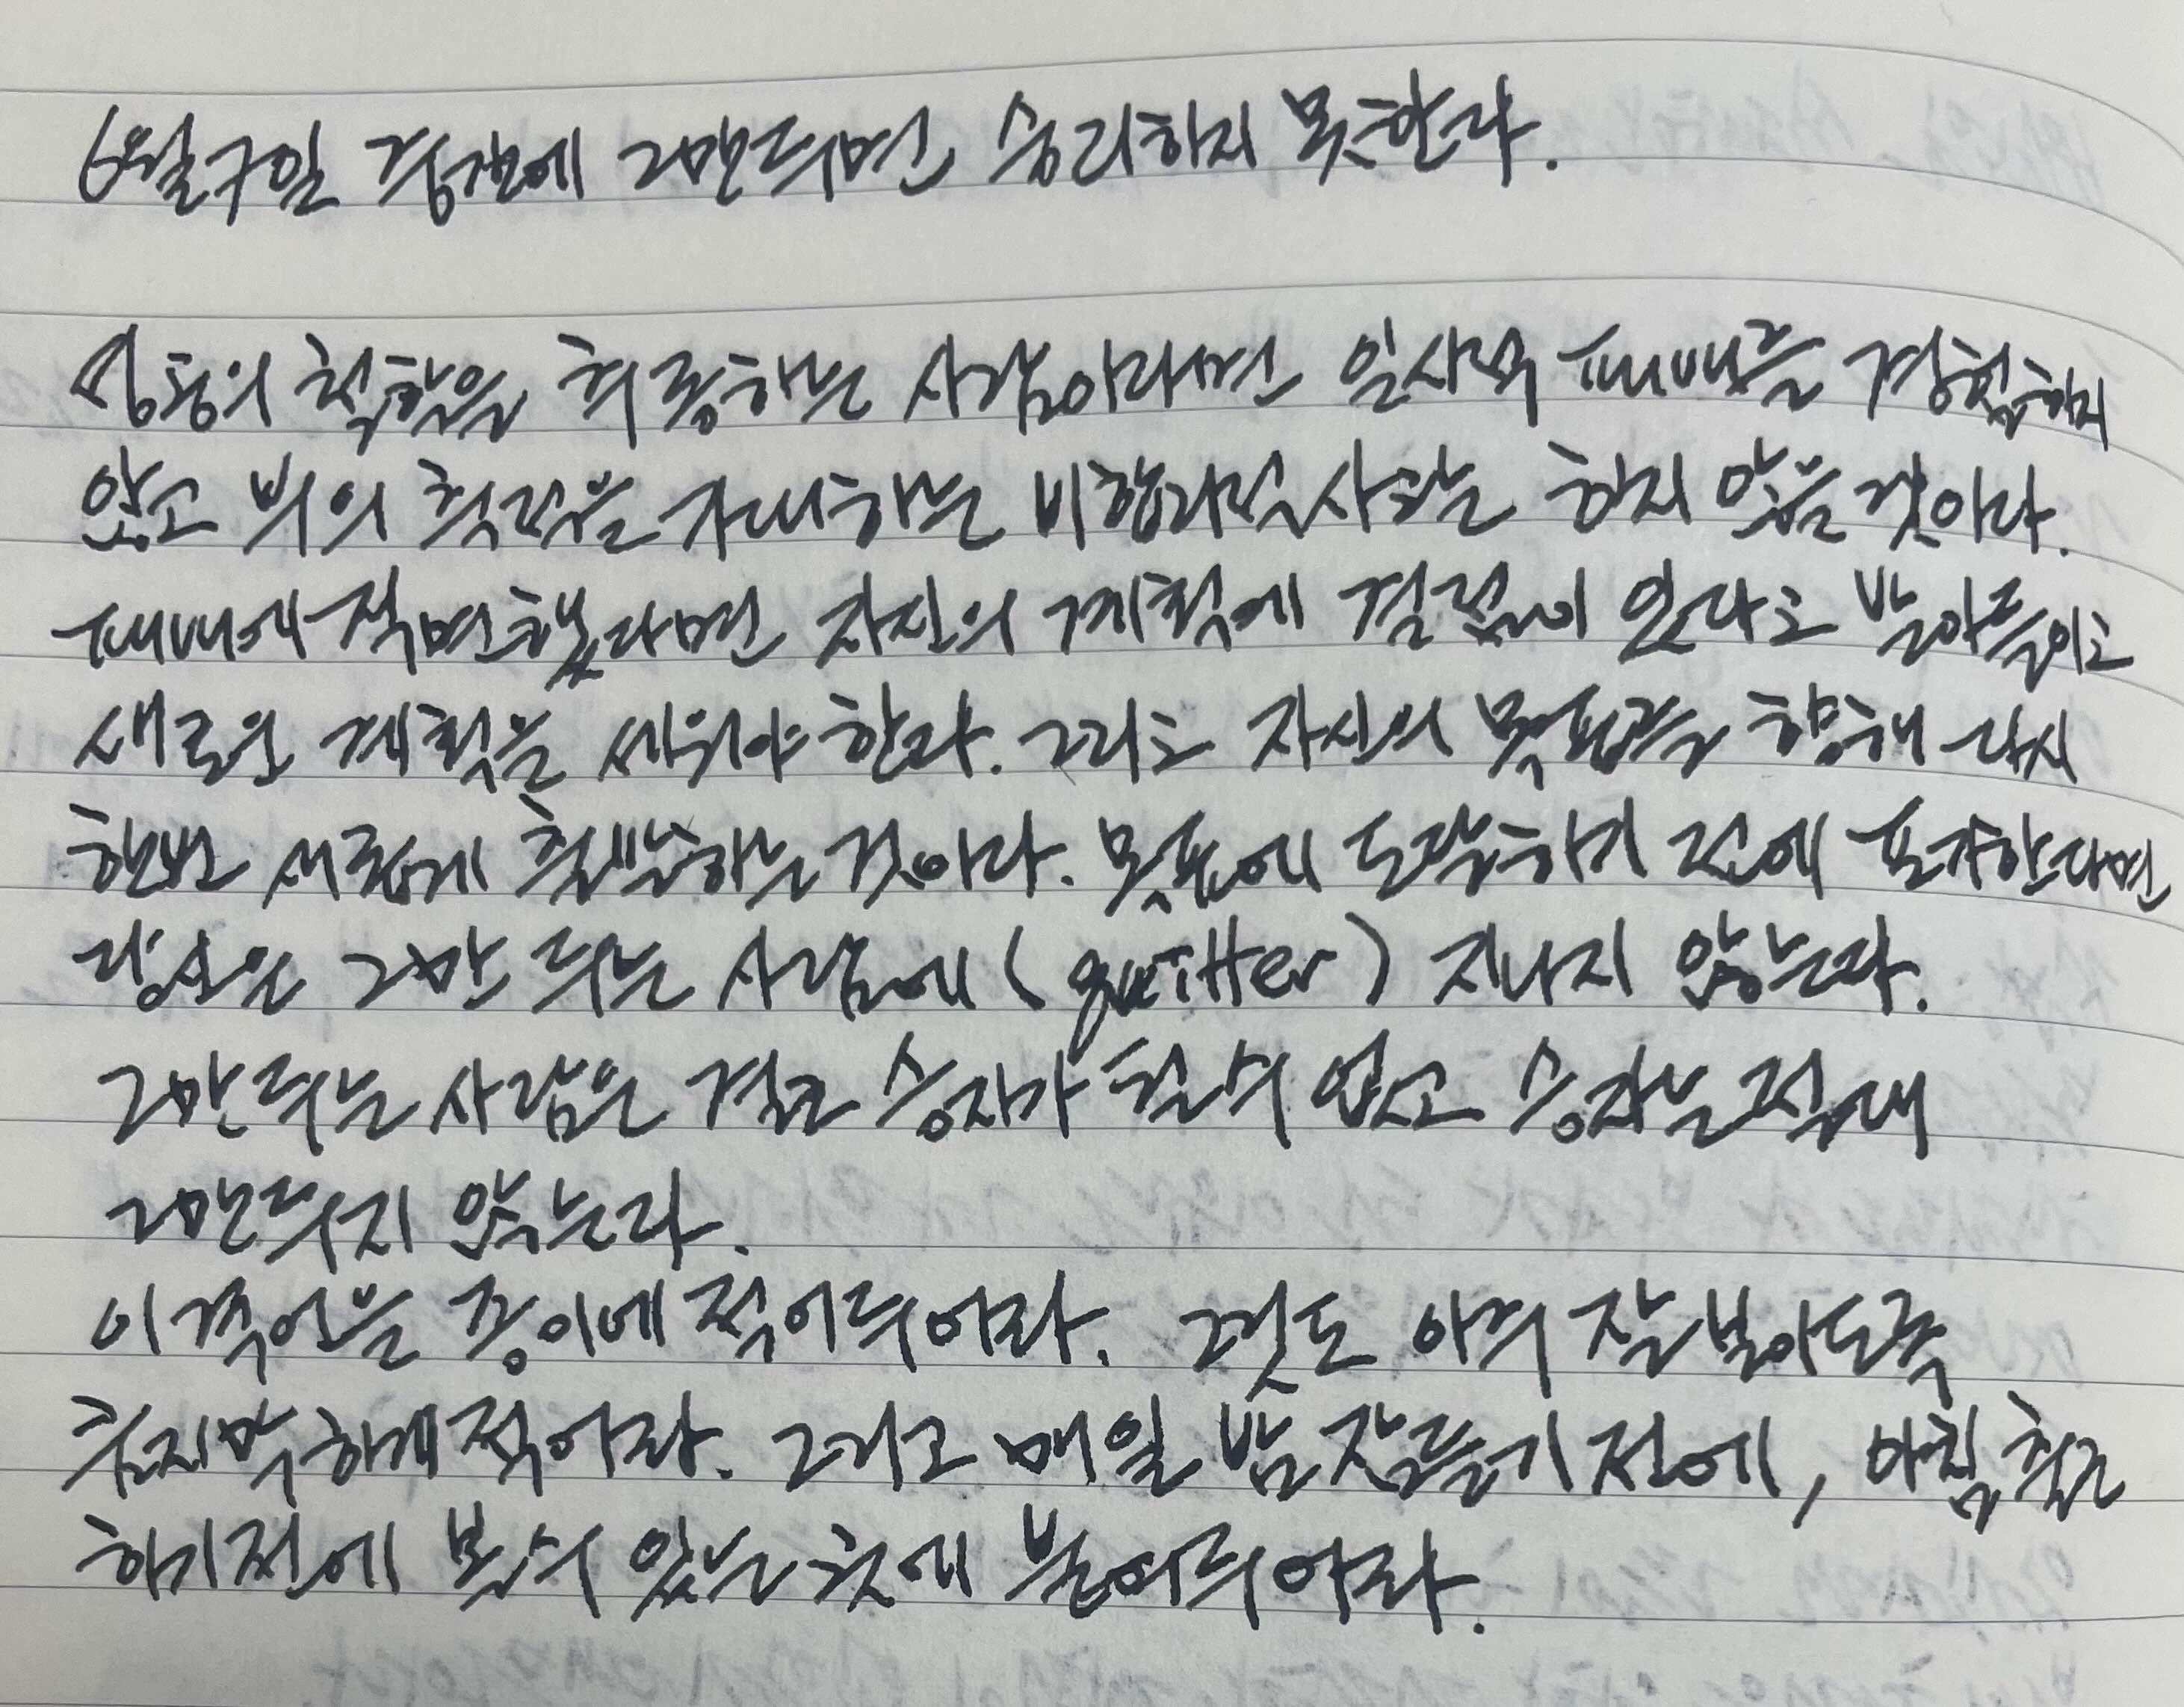 6월 7일 중간에 그만두면 승리하지 못한다.
성공의 철학을 추종하는 사람이라면 일시적 패배를 경험하지
않고 부의 축적을 기대하는 비합리적 사고는 하지 않을 것이다.
패배에 직면했다면 자신의 계획에 결점이 있다고 받아들이고
새로운 계획을 세워야 한다. 그리고 자신의 목표를 향해 다시
한번 새롭게 출발하는 것이다. 목표에 도달하기 전에 포기한다면
당신은 그만 두는 사람에 (quitter) 지나지 않는다.
그만 두는 사람은 결코 승자가 될 수 없고 승자는 절대
그만두지 않는다.
이 격언을 종이에 적어두어라. 그것도 아주 잘 보이도록
큼지막하게 적어라. 그리고 매일 밤 잠들기 전에, 아침 출근
하기 전에 볼 수 있는 곳에 붙여두어라.